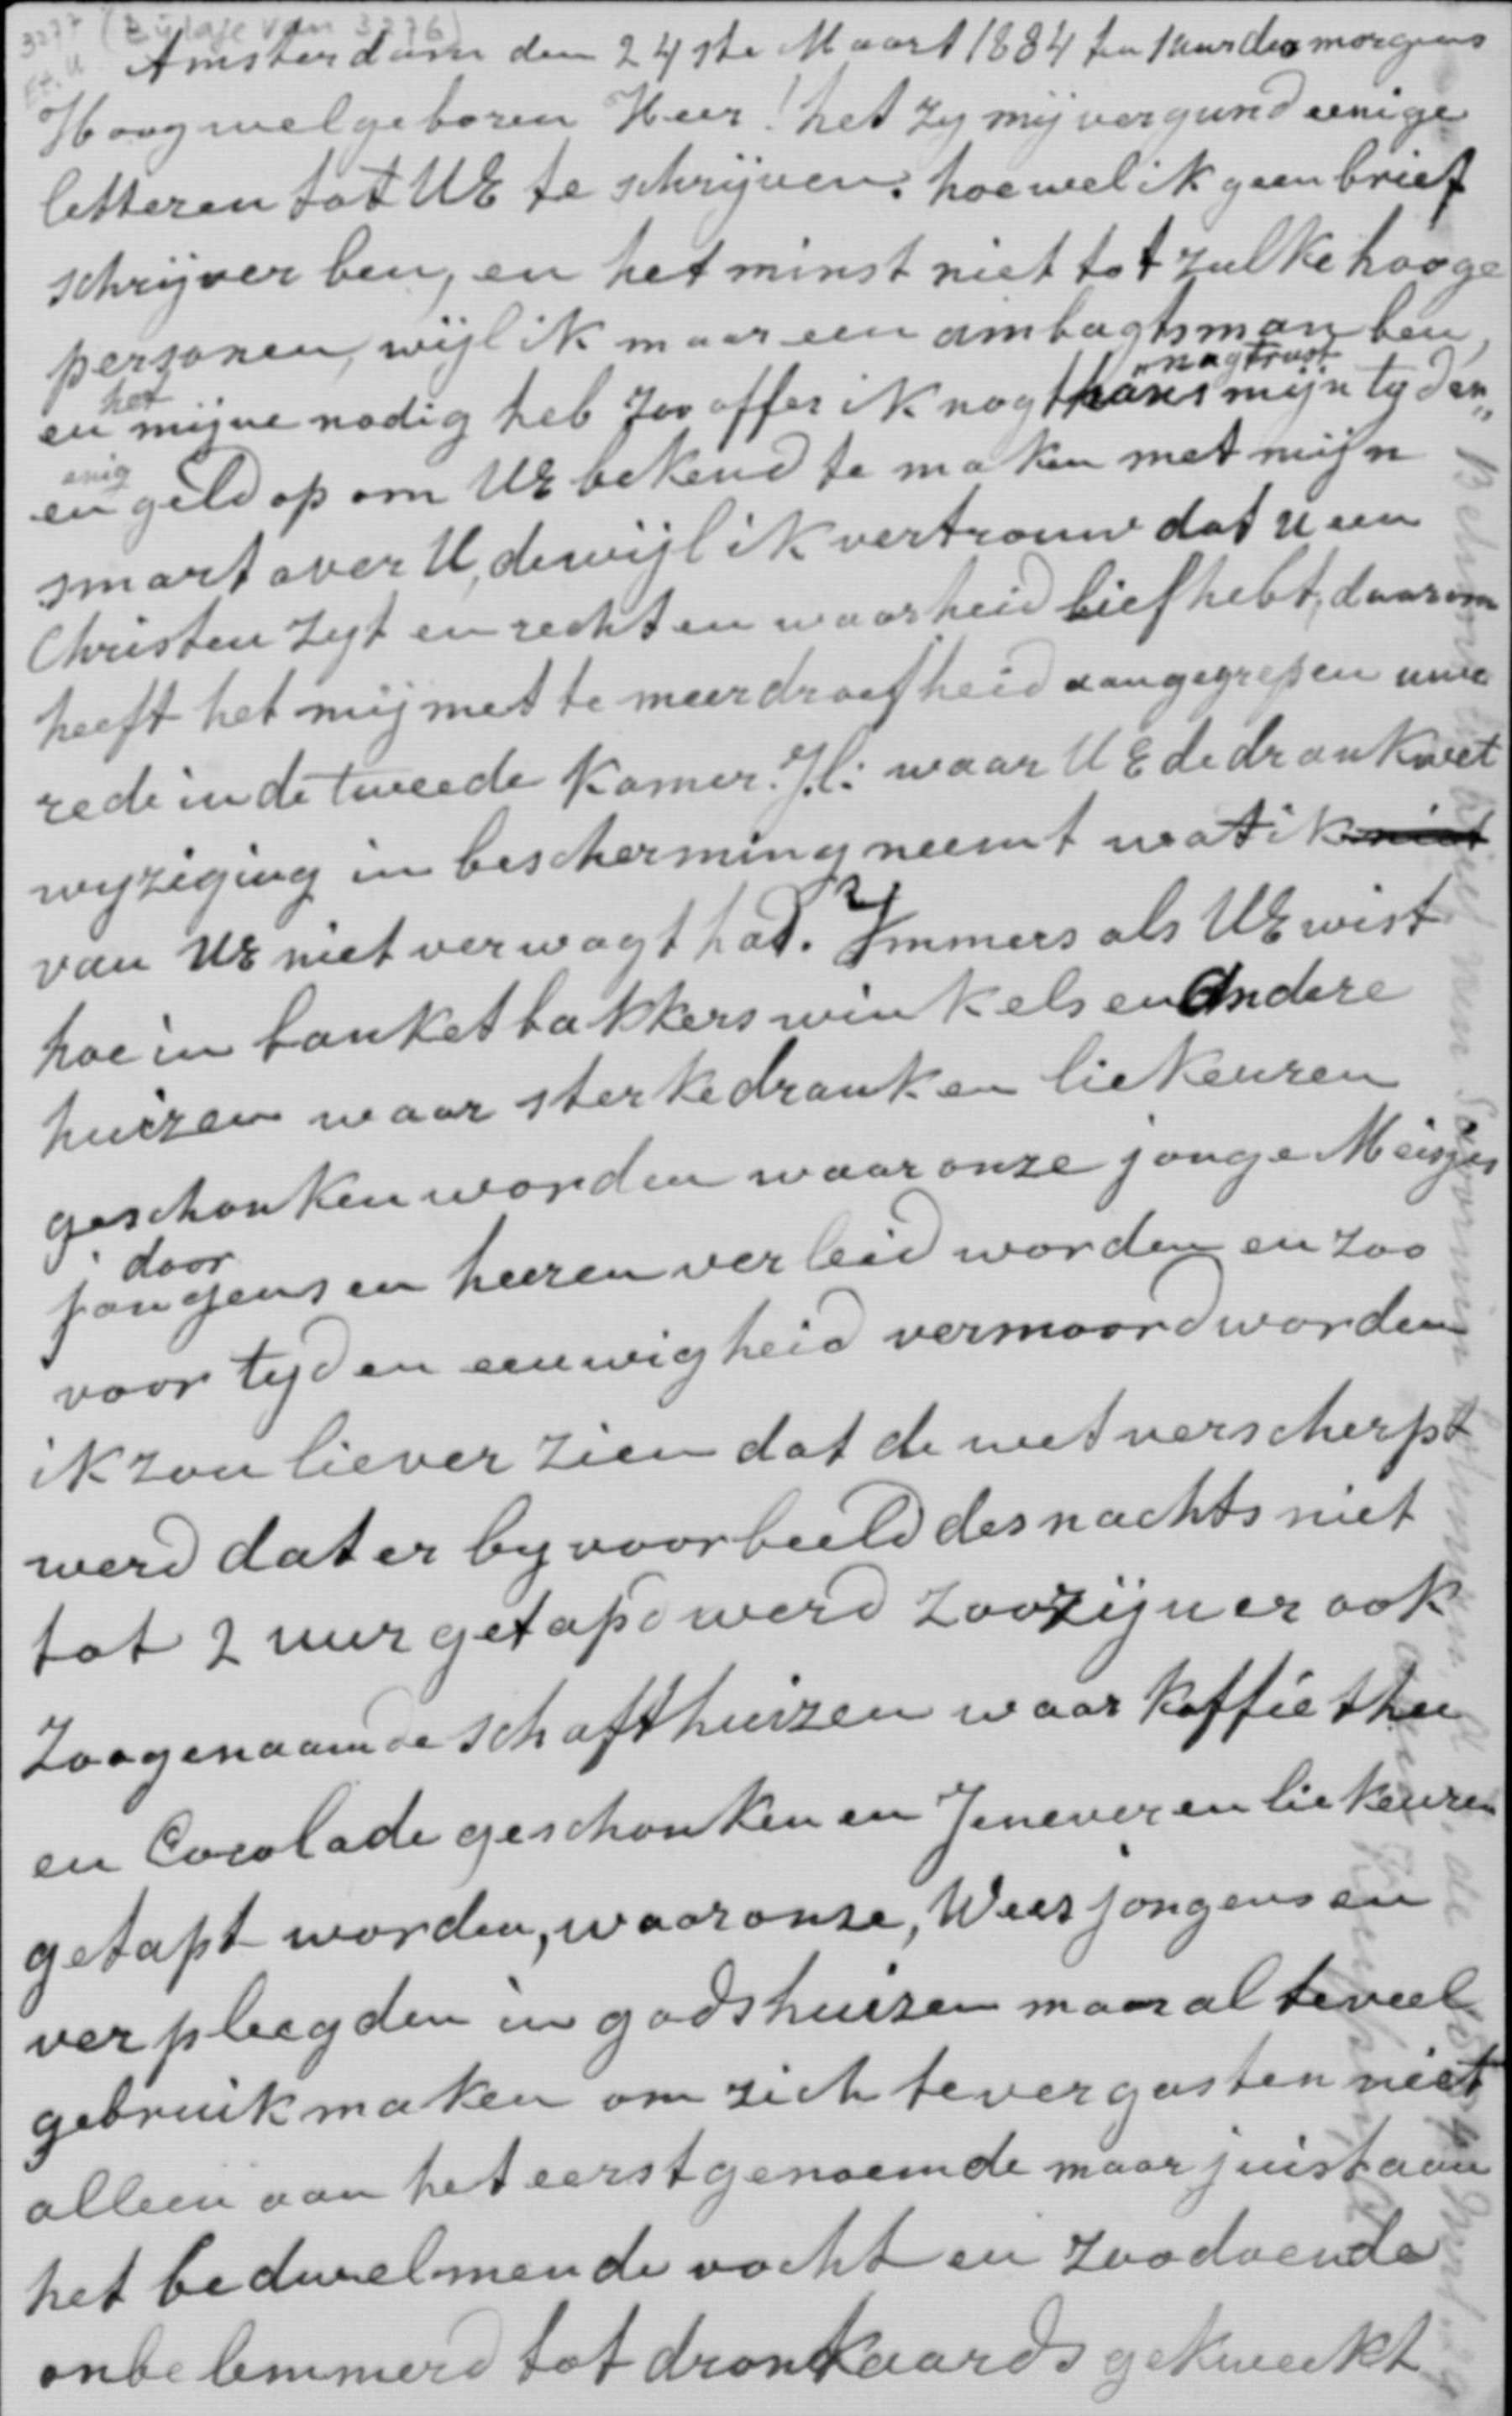 3277 (Bijlage van 3276)
Amsterdam den 24ste Maart 1884 ten 1 uur des morgens
Hoogwelgeboren Heer! het zy mij vergund eenige
letteren tot UE te schrijven. hoewel ik geen brief
schrijver ben, en het minst niet tot zulke hooge
personen, wijl ik maar een ambagtsman ben,
en het mijne nodig heb zoo offer ik nogthans mijn tyd en "nagtrust"
en enig geld op om UE bekend te maken met mijn
smart over U, dewijl ik vertrouw dat u een
Christen zyt en recht en waarheid lief hebt, daarom
heeft het mij met te meer droefheid aangegrepen uwe
rede in de tweede Kamer. Jl: waar UE de drankwet
wyziging in bescherming neemt wat ik niet
van UE niet verwagt had. Immers als UE wist
hoe in banketbakkers winkels en Andere
huizen waar sterkedrank en liekeuren
geschonken worden waar onze jonge Meisjes
door jongens en heeren verleid worden en zoo
voor tyd en eeuwigheid vermoord worden
ik zou liever zien dat de wet verscherpt
werd dat er byvoorbeeld des nachts niet
tot 2 uur getapd werd zoo zijn er ook
Zoogenaamde schafthuizen waar koffie thee
en Cocolade geschonken en Jenever en liekeuren
getapt worden, waar onze, Weesjongens en
verpleegden in godshuizen maar al te veel
gebruik maken om zich te vergasten niet
alleen aan het eerstgenoemde maar juist aan
het bedwelmende vocht en zoodoende
onbelemmerd tot dronkaards gekweekt